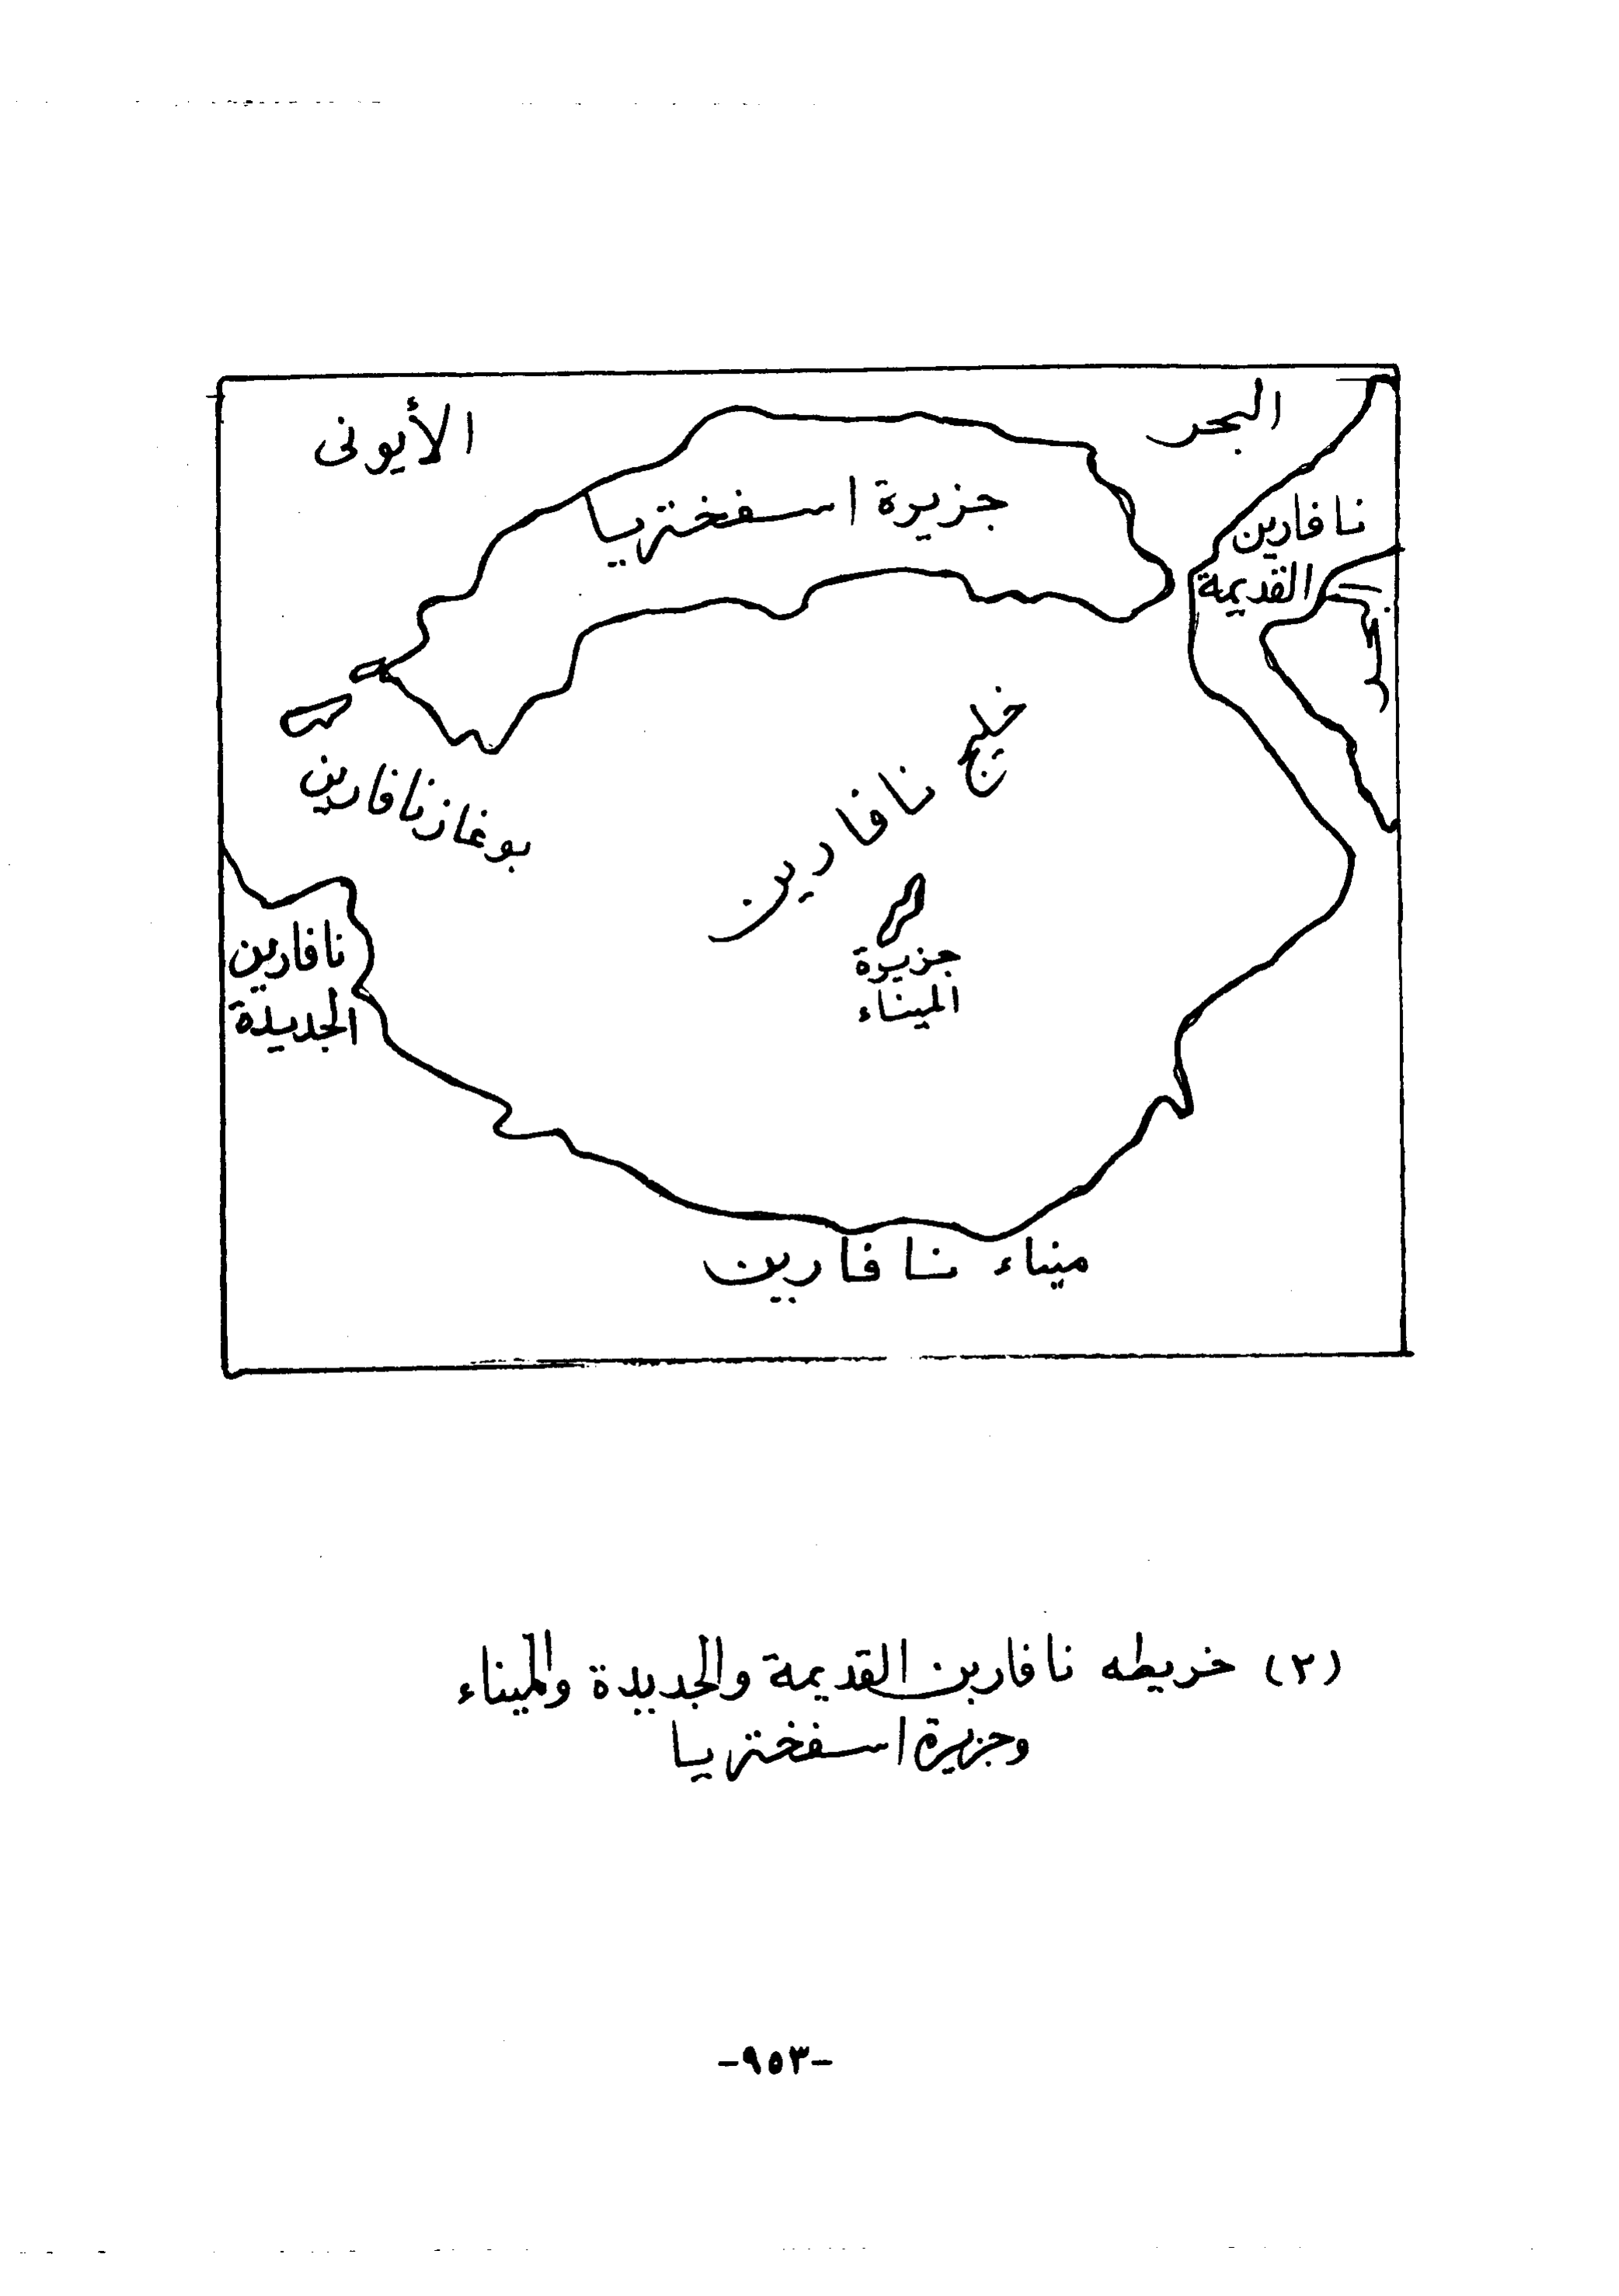 البحر
الأيونى
جزيرة اسفختريا
نافارين
القديمة
خليج نافارين
بوغاز نافارين
جزيرة
الميناء
نافارين
الجديدة
ميناء نافارين
(٢) خريطه نافارين القديمة والجديدة والميناء
وجزيرة اسفختريا
-٩٥٣-